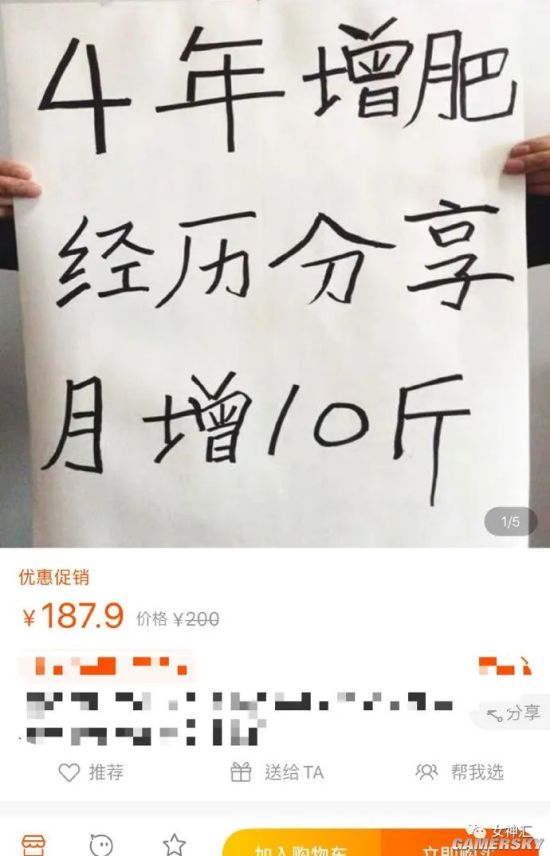 4年增肥
经历分享
月增10斤
1/5
优惠促销
¥187.9 价格 ¥200
分享
推荐 送给TA 帮我选
女神汇
加入购物车 立即购买
GAMERSKY